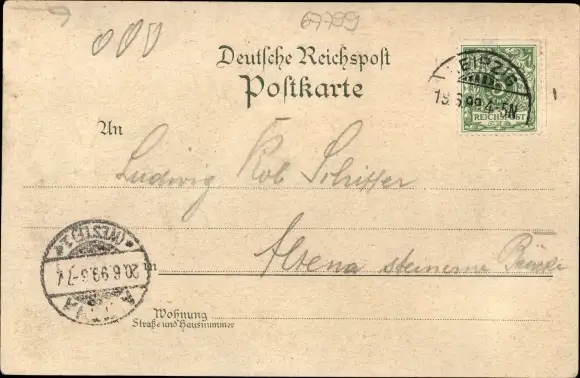 67799
Deutsche Reichspost
Postkarte
LEIPZIG
19.6.99.4-5N
REICHSPOST
An
Ludwig Rob Schiffer
in Altena steinerne Brücke
(WESTF.)
20.6.99.6-7
Wohnung
Straße und Hausnummer